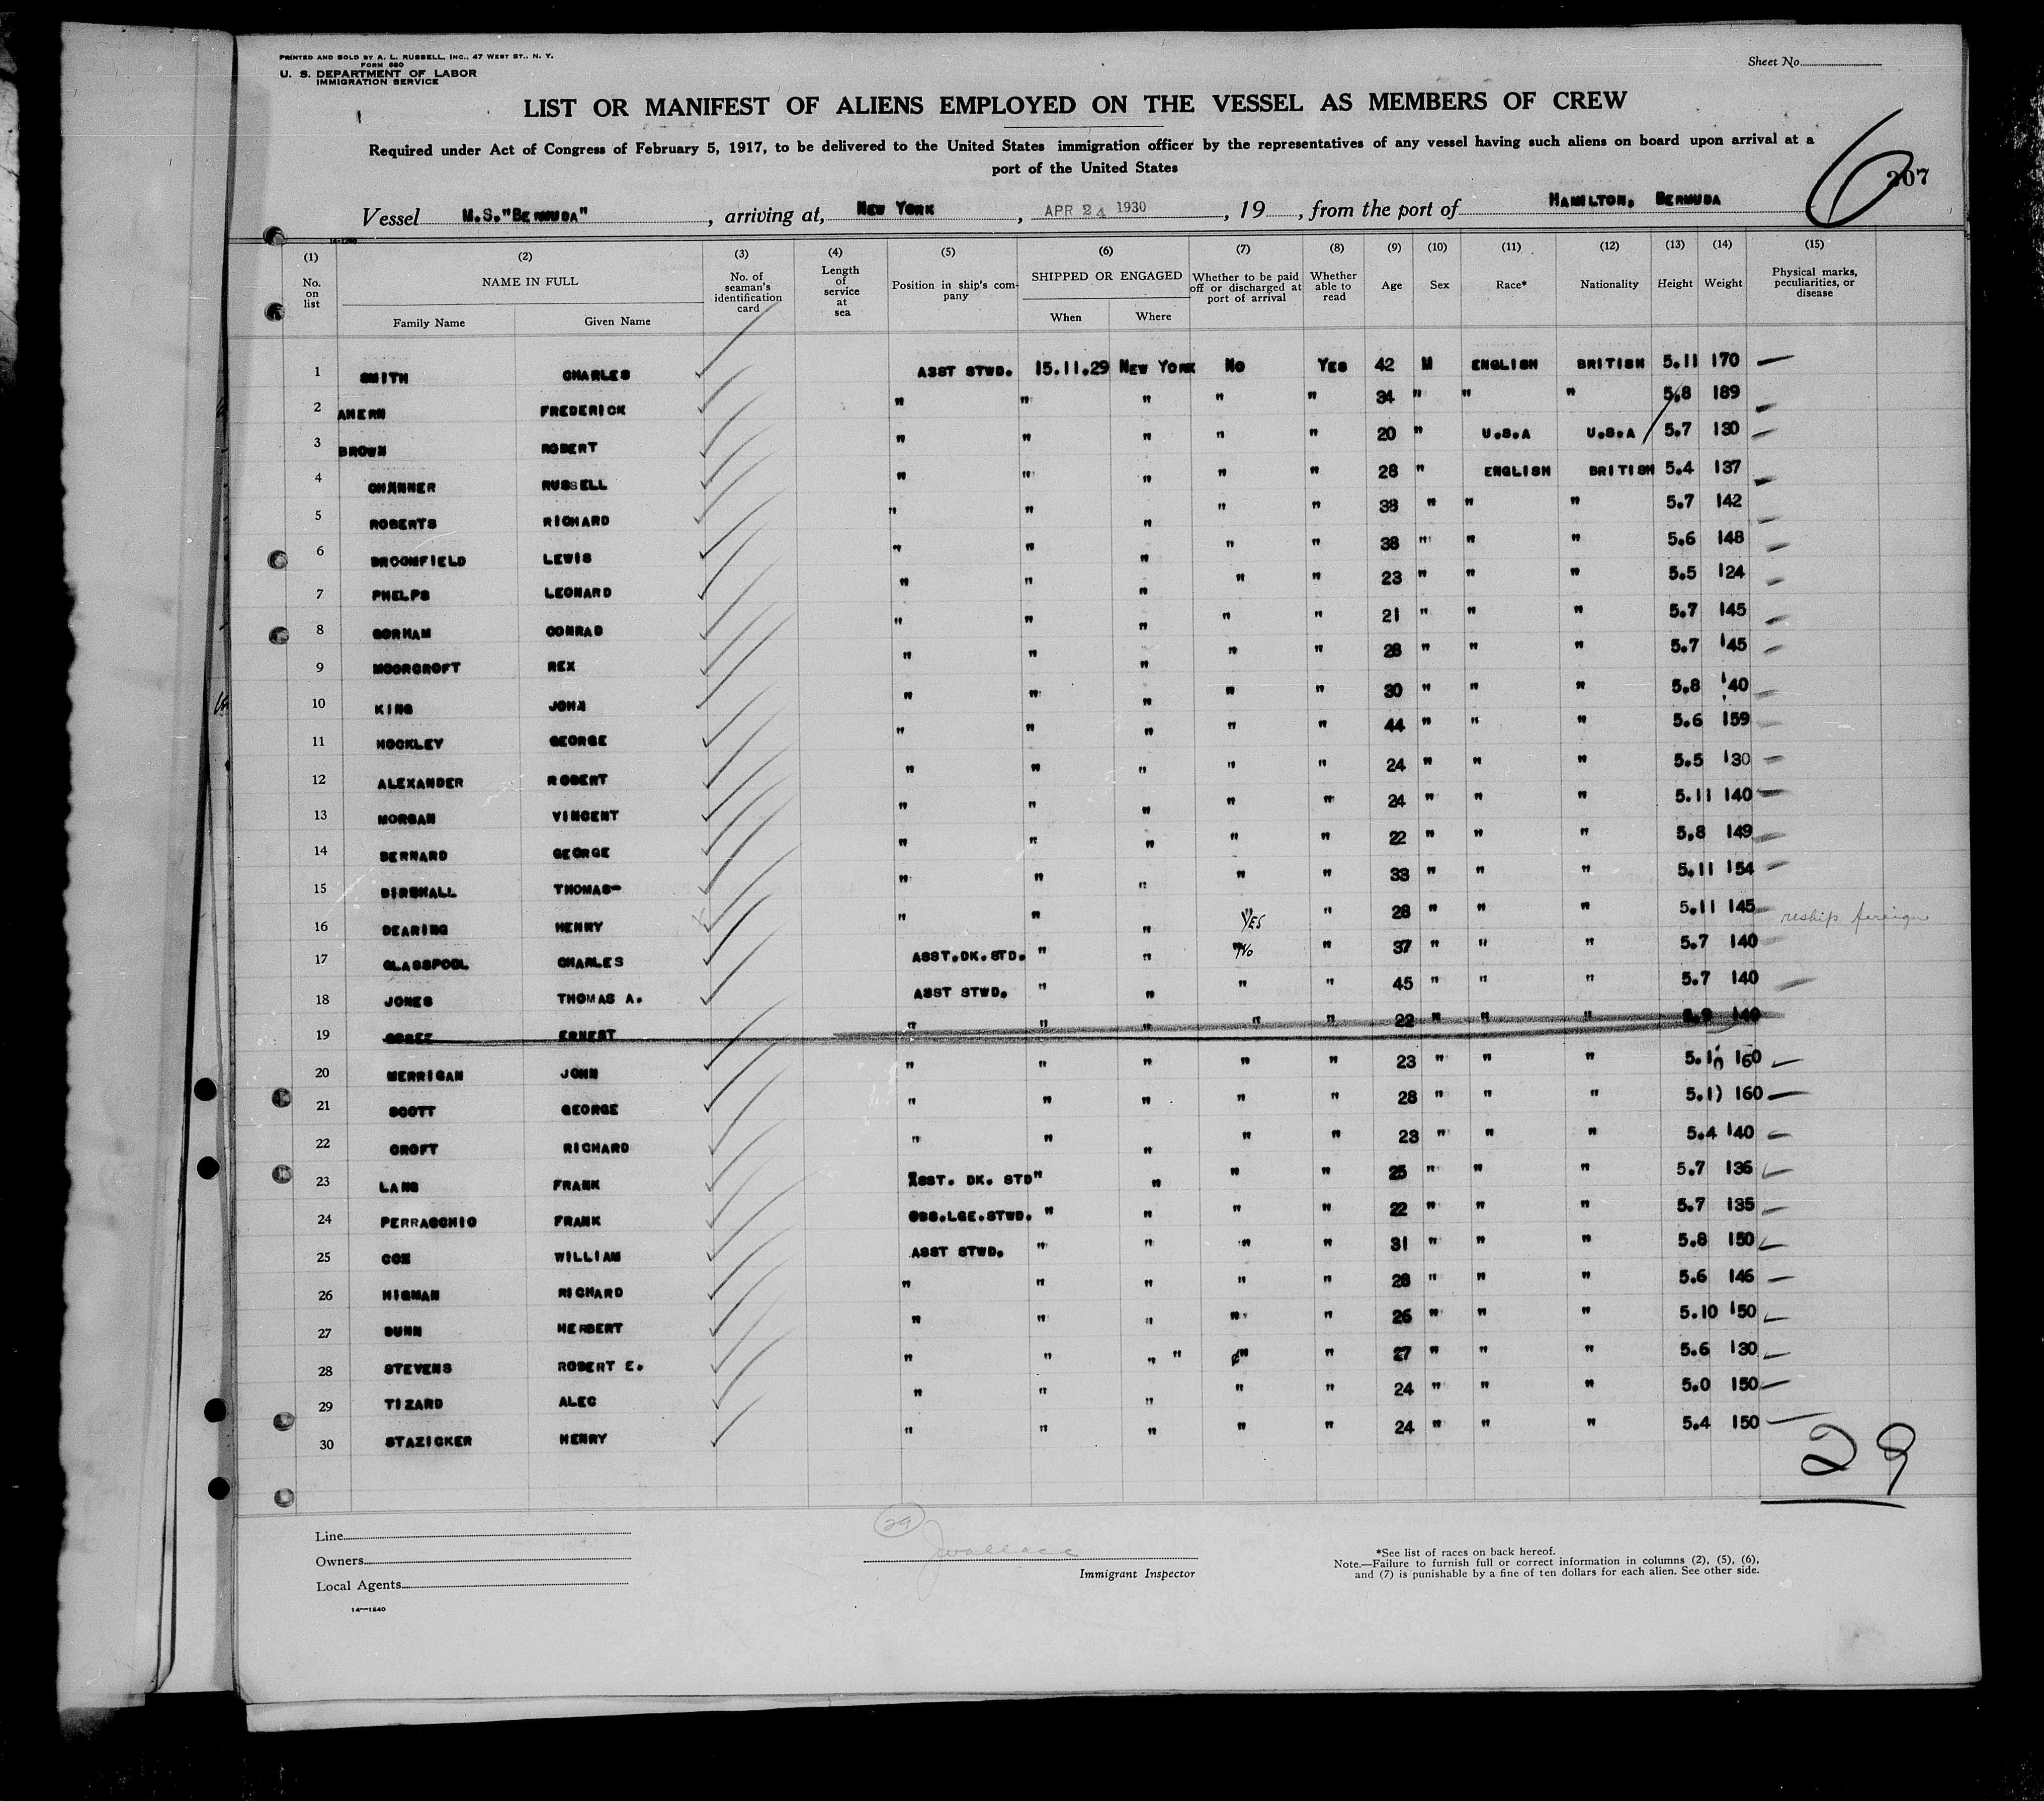 PRINTED AND SOLD BY A. L. RUSSELL, INC., 47 WEST ST., N. Y.
FORM 680
U. S. DEPARTMENT OF LABOR
IMMIGRATION SERVICE
Sheet No.
LIST OR MANIFEST OF ALIENS EMPLOYED ON THE VESSEL AS MEMBERS OF CREW
Required under Act of Congress of February 5, 1917, to be delivered to the United States immigration officer by the representatives of any vessel having such aliens on board upon arrival at a
port of the United States
6 207
Vessel M.S."BERMUDA", arriving at, NEW YORK, APR 24 1930, 19, from the port of HAMILTON, BERMUDA
14-1240
(1) (2) (3) (4) (5) (6) (7) (8) (9) (10) (11) (12) (13) (14) (15)
No. on list NAME IN FULL Family Name Given Name No. of seaman's identification card Length of service at sea Position in ship's company SHIPPED OR ENGAGED When Where Whether to be paid off or discharged at port of arrival Whether able to read Age Sex Race* Nationality Height Weight Physical marks, peculiarities, or disease
1 SMITH CHARLES ASST STWD. 15.11.29 NEW YORK NO YES 42 M ENGLISH BRITISH 5.11 170
2 AHERN FREDERICK " " " " " 34 " " " 5.8 189
3 BROWN ROBERT " " " " " 20 " U.S.A U.S.A 5.7 130
4 CHANNER RUSSELL " " " " " 28 " ENGLISH BRITISH 5.4 137
5 ROBERTS RICHARD " " " " " 38 " " " 5.7 142
6 BROOMFIELD LEWIS " " " " " 38 " " " 5.6 148
7 PHELPS LEONARD " " " " " 23 " " " 5.5 124
8 GORHAM CONRAD " " " " " 21 " " " 5.7 145
9 MOORCROFT REX " " " " " 28 " " " 5.7 145
10 KING JOHN " " " " " 30 " " " 5.8 140
11 HOCKLEY GEORGE " " " " " 44 " " " 5.6 159
12 ALEXANDER ROBERT " " " " " 24 " " " 5.5 130
13 MORGAN VINCENT " " " " " 24 " " " 5.11 140
14 BERNARD GEORGE " " " " " 22 " " " 5.8 149
15 BIRSHALL THOMAS " " " " " 33 " " " 5.11 154
16 DEARING HENRY " " " YES " 28 " " " 5.11 145 reship foreign
17 GLASSPOOL CHARLES ASST.DK.STD. " " No " 37 " " " 5.7 140
18 JONES THOMAS A. ASST STWD. " " " " 45 " " " 5.7 140
19 ERNEST " " " " " 22 " " " 5.9 140
20 MERRIGAN JOHN " " " " " 23 " " " 5.10 160
21 SCOTT GEORGE " " " " " 28 " " " 5.1) 160
22 CROFT RICHARD " " " " " 23 " " " 5.4 140
23 LANG FRANK ASST. DK. STD" " " " 25 " " " 5.7 136
24 PERRACCHIO FRANK OBS.LGE.STWD. " " " " 22 " " " 5.7 135
25 COX WILLIAM ASST STWD. " " " " 31 " " " 5.8 150
26 HIGMAN RICHARD " " " " " 28 " " " 5.6 146
27 DUNN HERBERT " " " " " 26 " " " 5.10 150
28 STEVENS ROBERT E. " " " " " " 27 " " " 5.6 130
29 TIZARD ALEC " " " " " 24 " " " 5.0 150
30 STAZICKER HENRY " " " " " 24 " " " 5.4 150
29
Line
Owners
Local Agents
14—1240
29
J Wallace
Immigrant Inspector
*See list of races on back hereof.
Note.—Failure to furnish full or correct information in columns (2), (5), (6),
and (7) is punishable by a fine of ten dollars for each alien. See other side.